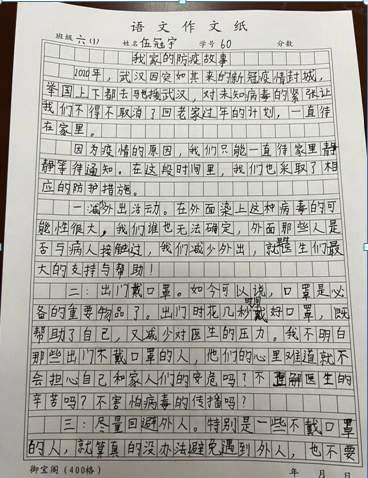 语文作文纸
班级 六(1) 姓名 伍冠宇 学号 60 分数
我家的防疫故事
2020年，武汉因突如其来的新冠疫情封城，
举国上下都去支援武汉，对未知病毒的紧张让
我们不得不取消了回老家过年的计划，一直待
在家里。
因为疫情的原因，我们只能一直待家里静
静等待通知，在这段时间里，我们也采取了相
应的防护措施。
一：减少外出活动。在外面染上这种病毒的可
能性很大，我们谁也无法确定，外面那些人是
否与病人接触过，我们减少外出，就是医生们最
大的支持与帮助！
二：出门戴口罩。如今可以说，口罩是必
备的重要物品了。出门时花几秒时间戴好口罩，既
帮助了自己，又减少对医生的压力。我不明白
那些出门不戴口罩的人，他们的心里难道就不
会担心自己和家人们的安危吗？不理解医生的
辛苦吗？不害怕病毒的传播吗？
三：尽量回避外人。特别是一些不戴口罩
的人，就算真的没办法避免遇到外人，也不要
御宝阁（400格） 年 月 日